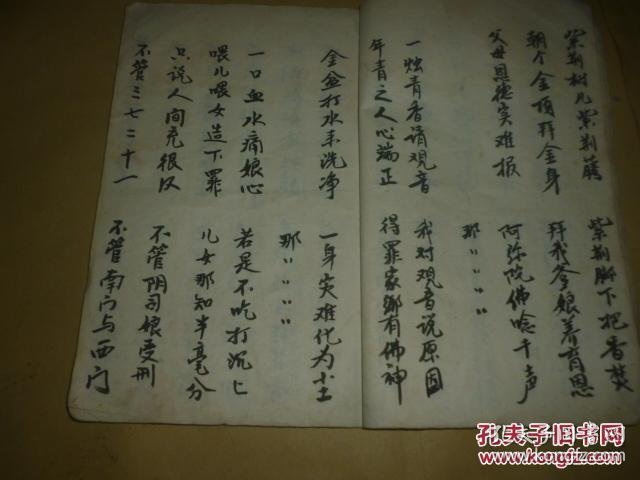 紫荆树儿紫荆藤 紫荆脚下把香焚
朝个金顶拜金身 拜我爹娘养育恩
父母恩德实难报 阿弥陀佛唸千声
那〃〃〃〃
一烛青香请观音 我对观音说原因
年青之人心端正 得罪家乡有佛神
金盆打水未洗净 一身灾难化为土
那〃〃〃〃
一口血水痛娘心 若是不吃打沉亡
喂儿喂女造下罪 儿女那知半毫分
只说人间充很汉 不管阴司娘受刑
不管三七二十一 不管南门与西门
孔夫子旧书网
www.kongfz.com